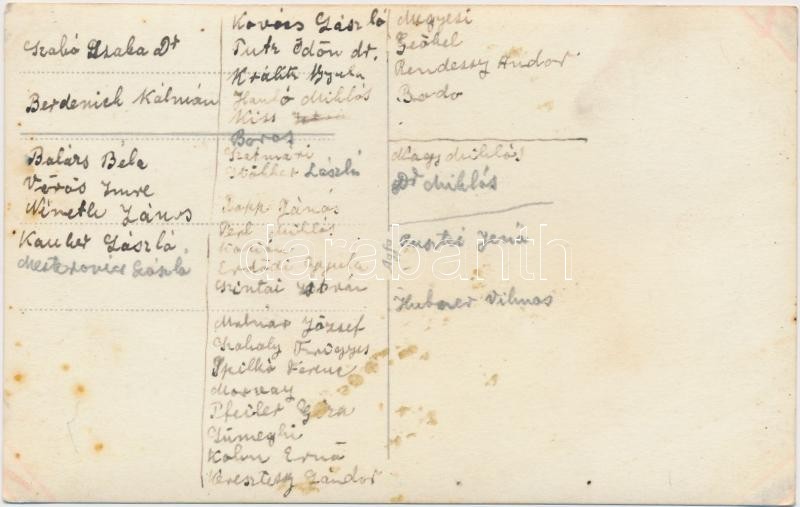 Szabó Csaba Dr
Berdenich Kálmán
Balázs Béla
Vörös Imre
Németh János
Kauher László.
Mesterovics László
Kovács László
Tutz Ödön dr.
Králik Gyula
Hanló Miklós
Kiss
Boros
Szatmári
Walther László
Papp János
Perl Miklós
Erdődi Gyula
Szintai István
Molnár József
Szohaly Frigyes
Spilkó Ferenc
Morvay
Pfeiler Géza
Sümeghi
Kohn Ernő
Keresztesy Sándor
Megyesi
Geöbel
Rendessy Andor
Bodo
Nagy Miklós
Dr Miklós
Agfa
Pusztai Jenő
Hubner Vilmos
darabanth